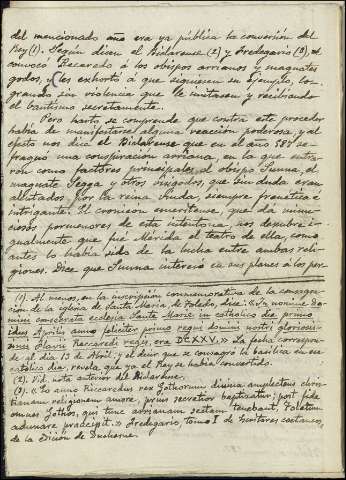 del mencionado año era ya pública la conversión del
Rey (1). Según dicen el Bidarense (2) y Fredegario (3),
convocó Recaredo á los obispos arrianos y magnates
godos, y les exhortó á que siguiesen su ejemplo, lo-
grando sin violencia que le imitasen y recibiendo
el bautismo secretamente.
Pero harto se comprende que contra este proceder
había de manifestarse alguna reacción poderosa, y al
efecto nos dice el Bidarense que en el año 587 se
fraguó una conspiración arriana, en la que entra-
ron como factores principales el obispo Sunna, el
magnate Segga y otros visigodos, que sin duda eran
alistados por la reina Suida, siempre frenética é
intrigante. El cronicon emeritense, que da minu-
ciosos pormenores de esta intentona, nos descubre i-
gualmente que fué Mérida el teatro de ella, como
antes lo había sido de la lucha entre ambas reli-
giones. Dice que Sunna interesó en sus planes á los per-
(1). Al menos, en la inscripción conmemorativa de la consagra-
ción de la iglesia de Santa María de Toledo, dice: «In nomine do-
mini consecrata eclesia Sante Marie in catholico die primo
idus Aprilis anno feliciter primo regni domini nostri gloriosi-
simi Flavii Reccaredi regis, era DCXXV.» La fecha correspon-
de al día 13 de Abril; y el decir que se consagró la basílica en dia
católico dia, revela que ya el Rey se había convertido.
(2). Vid. nota anterior del Bidarense.
(3). «Eo anno Riccaredus rex Gothorum divina amplectens chris-
tianam religionem amore, prius secretius baptizatur; post hæc
omnes Gothos, qui tunc arrianam sectam tenebant, Toletum
adunare præcipit.» Fredegario, tomo I de
de la Edición de Duchesne.